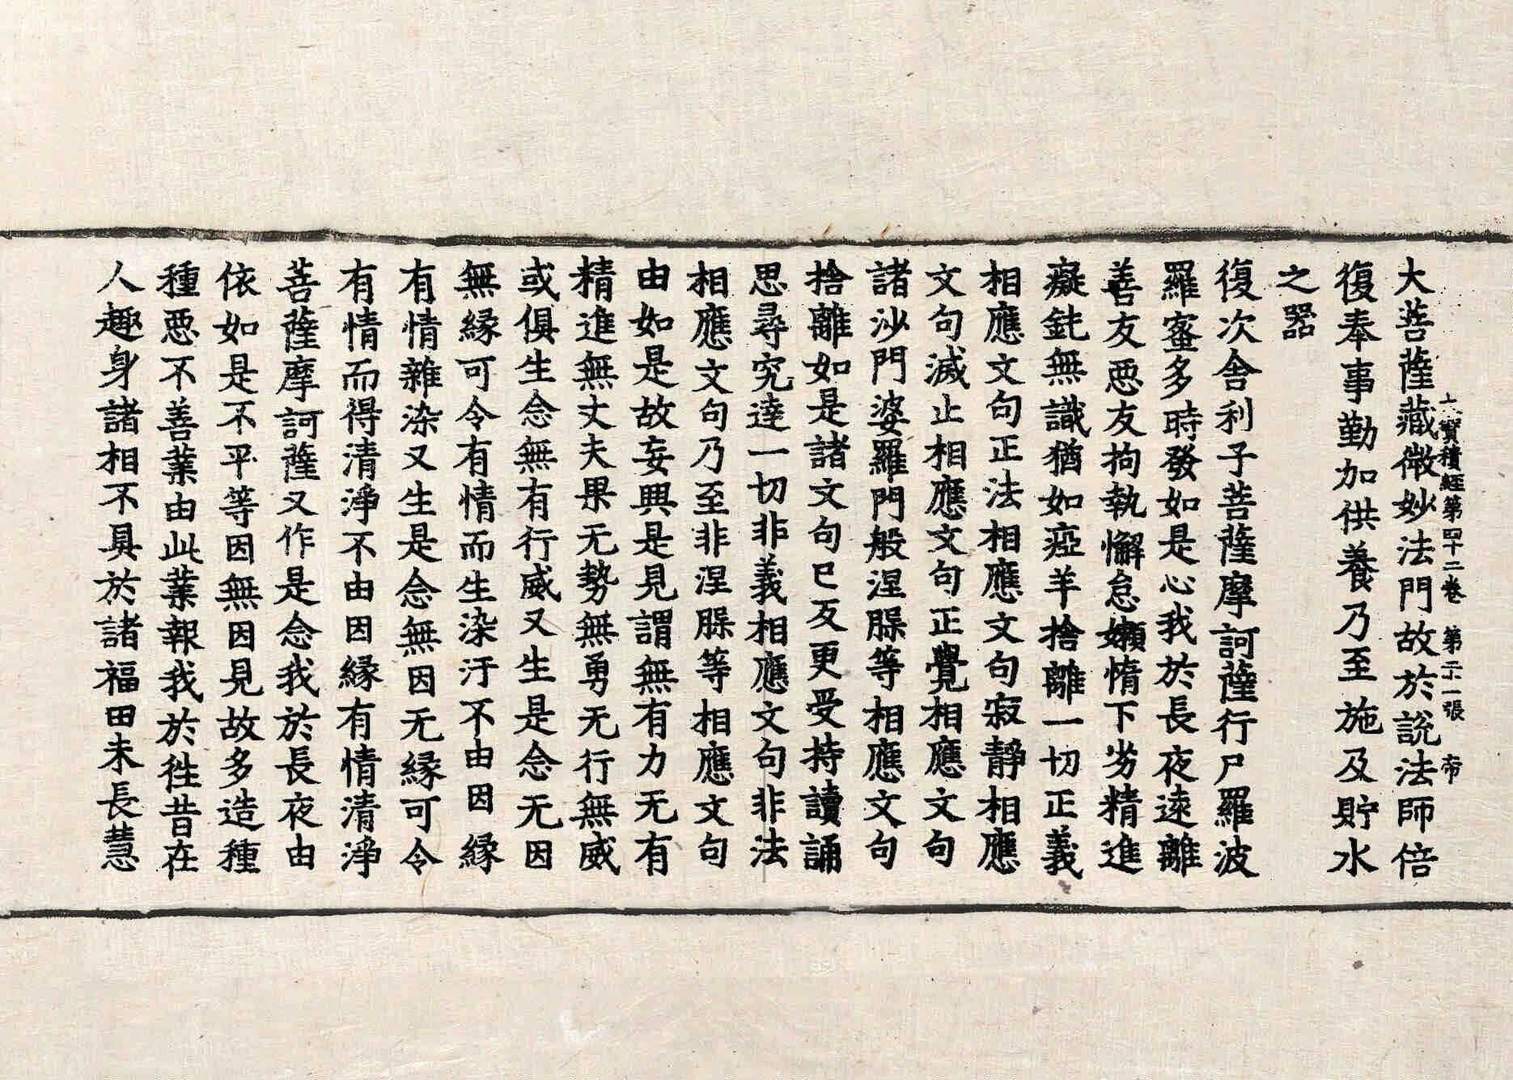 大寶積經第四十二卷 第二十一張 帝
大菩薩藏微妙法門故於說法師倍
復奉事勤加供養乃至施及貯水
之器
復次舍利子菩薩摩訶薩行尸羅波
羅蜜多時發如是心我於長夜遠離
善友惡友拘執懈怠嬾惰下劣精進
癡鈍無識猶如瘂羊捨離一切正義
相應文句正法相應文句寂靜相應
文句滅止相應文句正覺相應文句
諸沙門婆羅門般涅槃等相應文句
捨離如是諸文句已反更受持讀誦
思尋究達一切非義相應文句非法
相應文句乃至非涅槃等相應文句
由如是故妄興是見謂無有力无有
精進無丈夫果无勢無勇无行無威
或俱生念無有行威又生是念无因
無緣可令有情而生染汙不由因緣
有情雜染又生是念無因无緣可令
有情而得清淨不由因緣有情清淨
菩薩摩訶薩又作是念我於長夜由
依如是不平等因無因見故多造種
種惡不善業由此業報我於徃昔在
人趣身諸相不具於諸福田未長慧